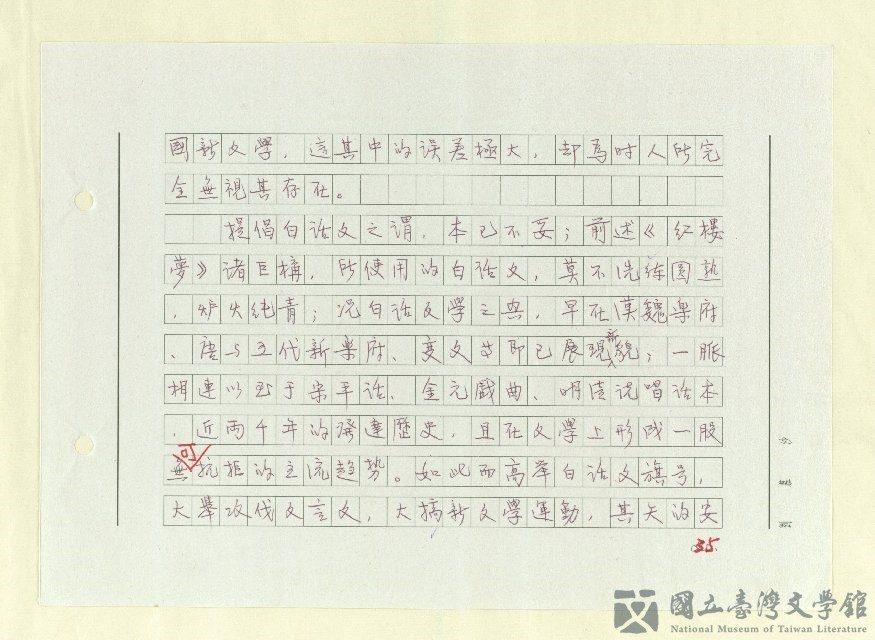 國新文学，這其中的误差極大，却為时人所完
全無視其存在。
提倡白话文之谓，本已不妥；前述《红楼
夢》诸巨構，所使用的白话文，莫不洗练圆熟
，炉火纯青；况白话文学之興，早在漢魏樂府
、唐与五代新樂府、变文等即已展现新貌；一脈
相連以至于宋平话、金元戲曲、明清说唱话本
，近两千年的發達歷史，且在文学上形成一股
無可抗拒的主流趋势。如此而高举白话文旗号，
大舉攻伐文言文，大搞新文学運動，其矢的安
35.
國立臺灣文學館
National Museum of Taiwan Literature